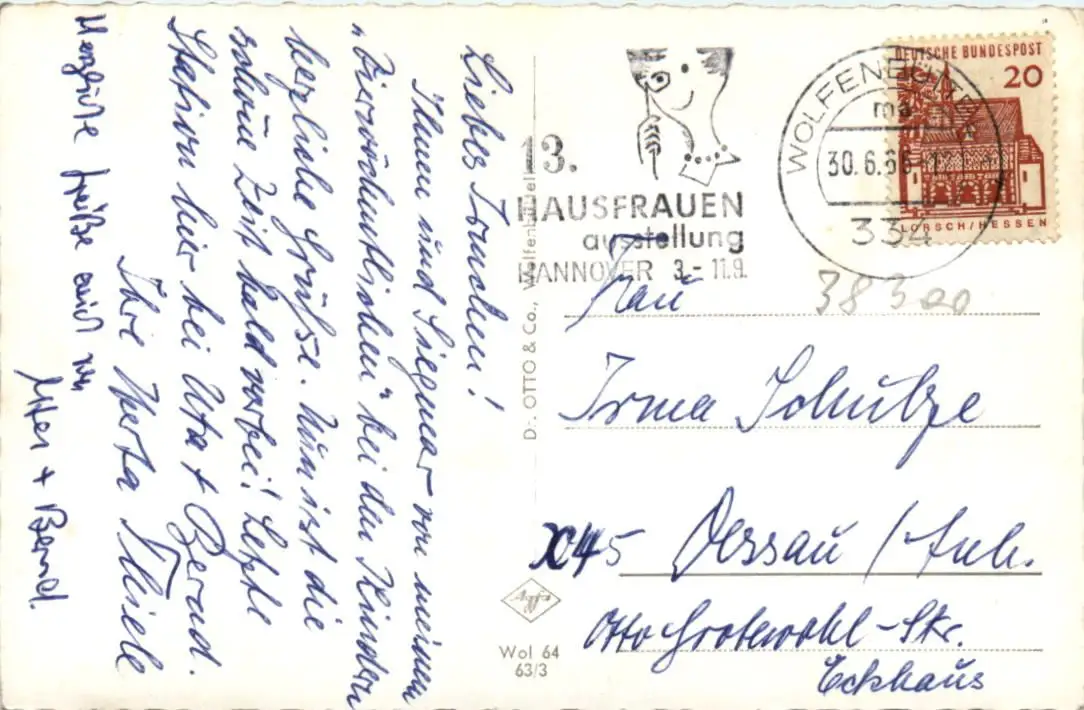 Liebes Irmchen!
Ihnen und Siegmar von meinen
„Vierwöchentlichen" bei den Kindern
herzliche Grüße. Nun ist die
schöne Zeit bald vorbei! Letzte
Station hier bei Uta + Bernd.
Ihre Herta Thiele
Herzliche Grüße auch von
Uta + Bernd.
Dr. OTTO & Co., Wolfenbüttel
13.
HAUSFRAUEN
ausstellung
HANNOVER 3.-11.9.
WOLFENBÜTTEL
ma
30.6.66
334
DEUTSCHE BUNDESPOST
20
LORSCH/HESSEN
38300
Frau
Irma Schulze
X45 Dessau / Anh.
Otto Grotewohl-Str.
Eckhaus
Wol 64
63/3